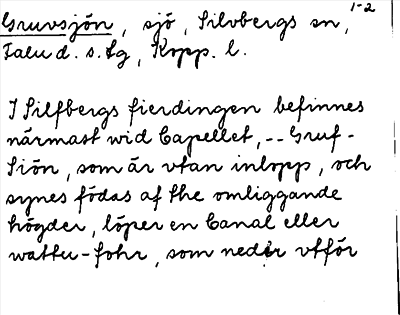 1-2
Gruvsjön, sjö, Silvbergs sn,
Falu d. s. Lg, Kopp. l.
I Silfbergs fierdingen befinnes
närmast wid Capellet, -- Gruf-
Siön, som är vtan inlopp, och
synes födas af the omliggande
högder, löper en Canal eller
wattu-fohr, som neder vtför